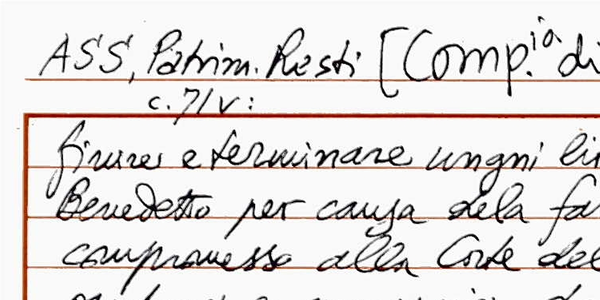 ASS, Patrim. Resti [Comp.ia di
c. 71v:
finire e terminare ungni li
Benedetto per causa dela fa
compromesso alla Corte del